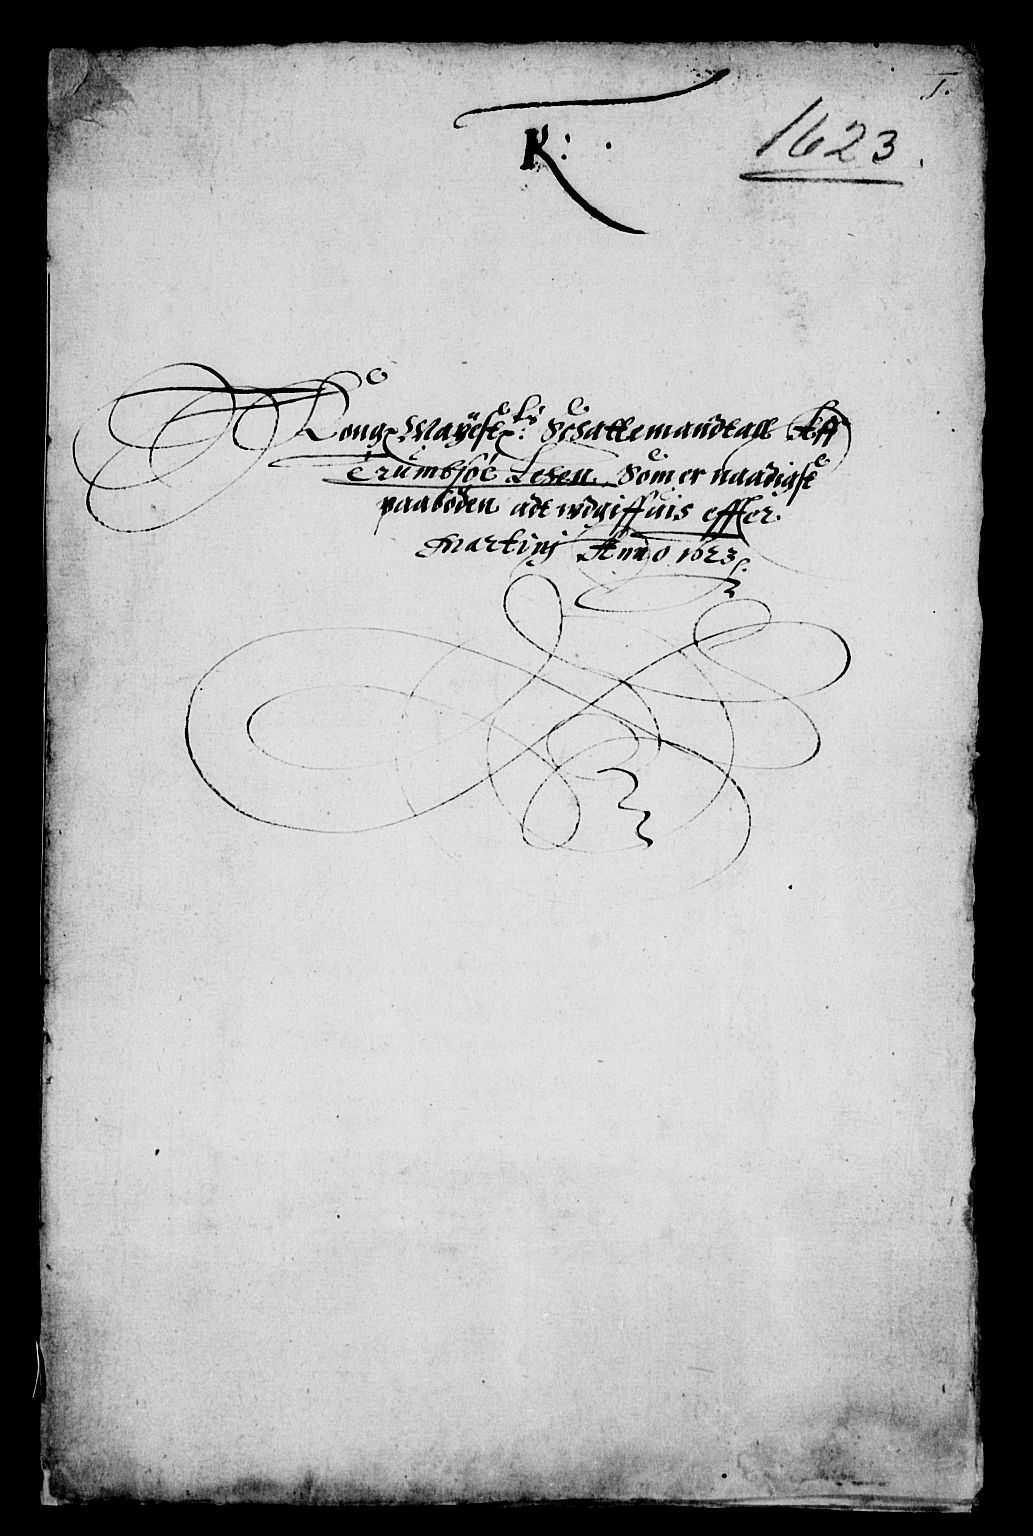 1.
K:
1623.
Kong: Mayest: ts: Schattemandtall Aff
Trumbsøe Lehen. Som er naadigst
paaboden adt wdgiffuis effter
Martinj Anno 1623